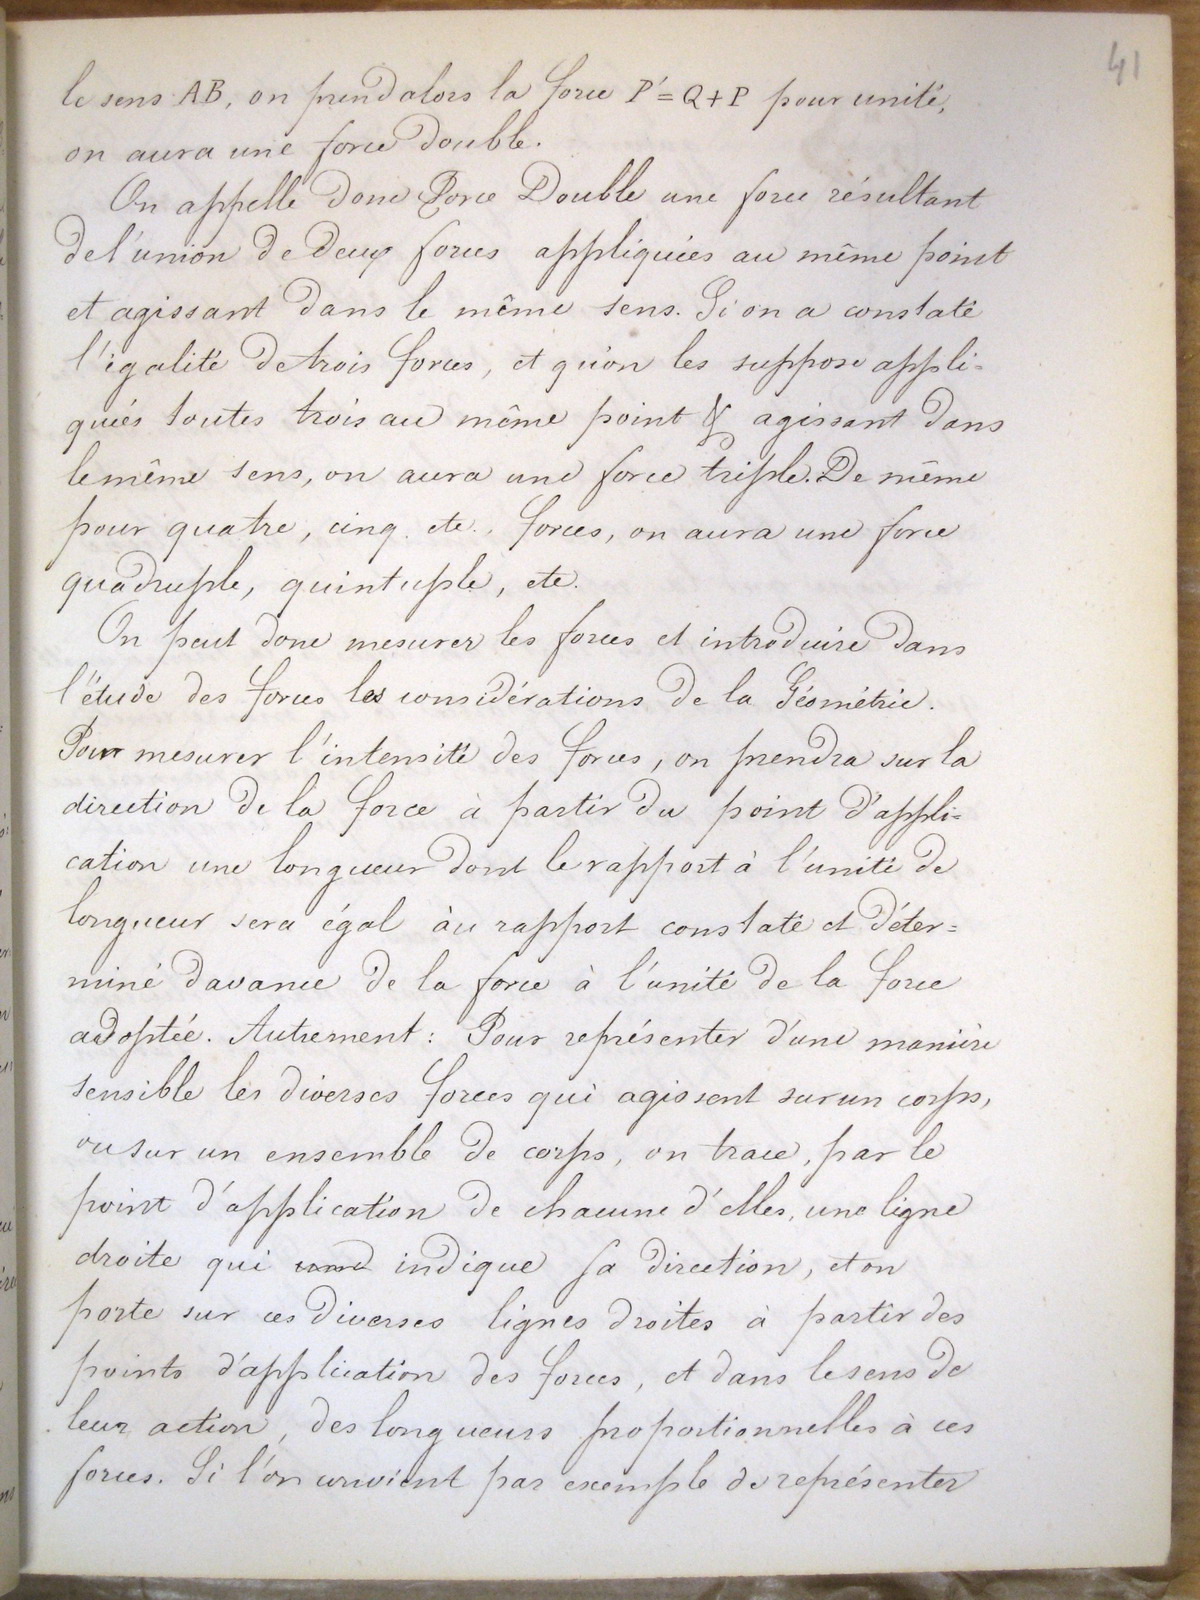 41
le sens AB, on prend alors la force P' = Q + P pour unité,
on aura une force double.
On appelle donc Force Double une force résultant
de l'union de deux forces appliquées au même point
et agissant dans le même sens. Si on a constaté
l'égalité de trois forces, et qu'on les suppose appli=
quées toutes trois au même point & agissant dans
le même sens, on aura une force triple. De même
pour quatre, cinq. etc.. forces, on aura une force
quadruple, quintuple, etc.
On peut donc mesurer les forces et introduire dans
l'étude des forces les considérations de la Géométrie.
Pour mesurer l'intensité des forces, on prendra sur la
direction de la force à partir du point d'appli=
cation une longueur dont le rapport à l'unité de
longueur sera égal àu rapport constaté et déter=
miné davance de la force à l'unité de la force
adoptée. Autrement : Pour représenter d'une manière
sensible les diverses forces qui agissent sur un corps,
ou sur un ensemble de corps, on trace, par le
point d'application de chacune d'elles, une ligne
droite qui indique sa direction, et on
porte sur ces diverses lignes droites à partir des
points d'application des forces, et dans le sens de
leur action, des longueurs proportionnelles à ces
forces. Si l'on convient par exemple de représenter